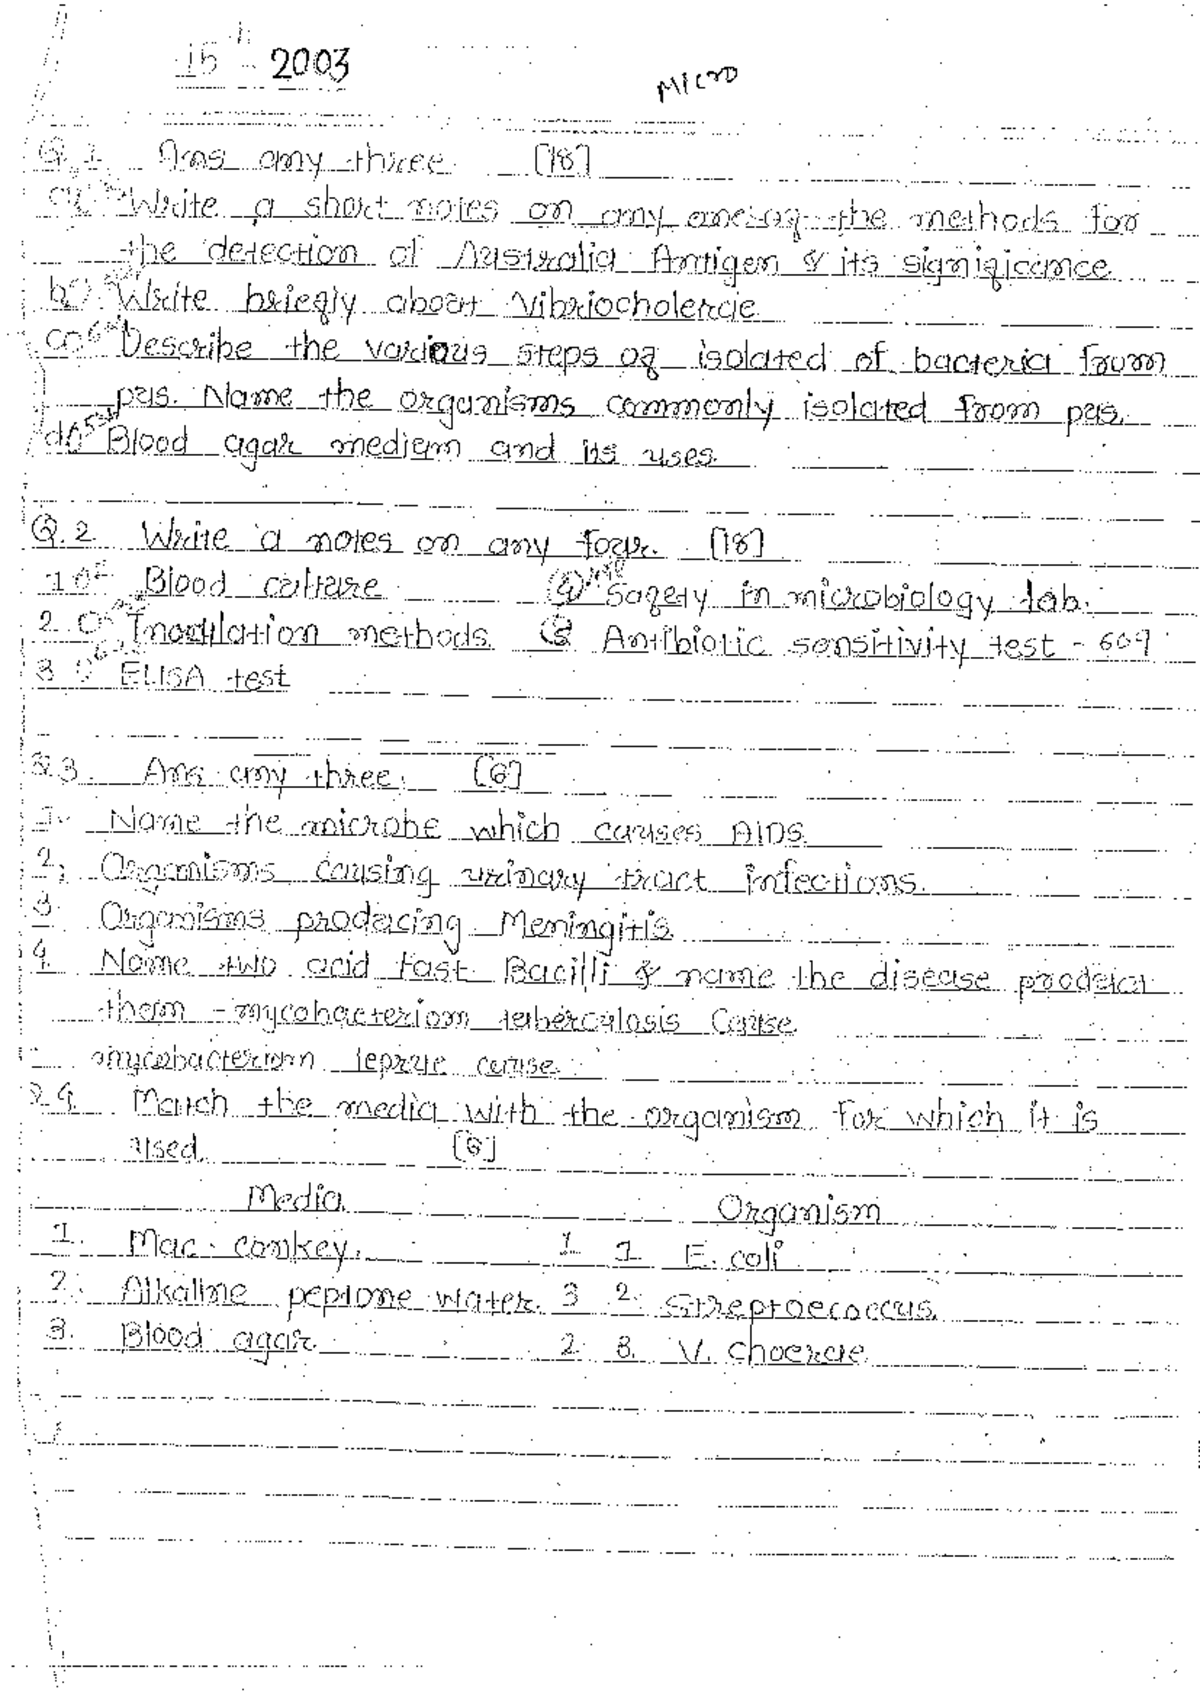 15th 2003
MICRO
Q.1 Ans any three. [18]
Write a short notes on any one of the methods for
the detection of Australia Antigen & its significance
b) Write briefly about Vibriocholerae
c) Describe the various steps of isolated of bacteria from
pus. Name the organisms commonly isolated from pus.
d) Blood agar medium and its uses.
Q.2 Write a notes on any four. [18]
1 Blood culture (4) Safety in microbiology lab.
2. Inoculation methods. (5) Antibiotic sensitivity test - 609
3 ELISA test
Q.3. Ans any three. [6]
1. Name the microbe which causes AIDS.
2. Organisms causing urinary tract infections.
3. Organisms producing Meningitis.
4. Name two acid fast Bacilli & name the disease
them - mycobacteriom tuberculosis Cause.
mycobacterium leprae cause.
Q.4. Match the media with the organism for which it is
used. [6]
Media Organism
1. Mac. conkey. 1 1. E. coli
2. Alkaline peptone water. 3 2. Streptoecoccus.
3. Blood agar. 2. 3. V. choerae.